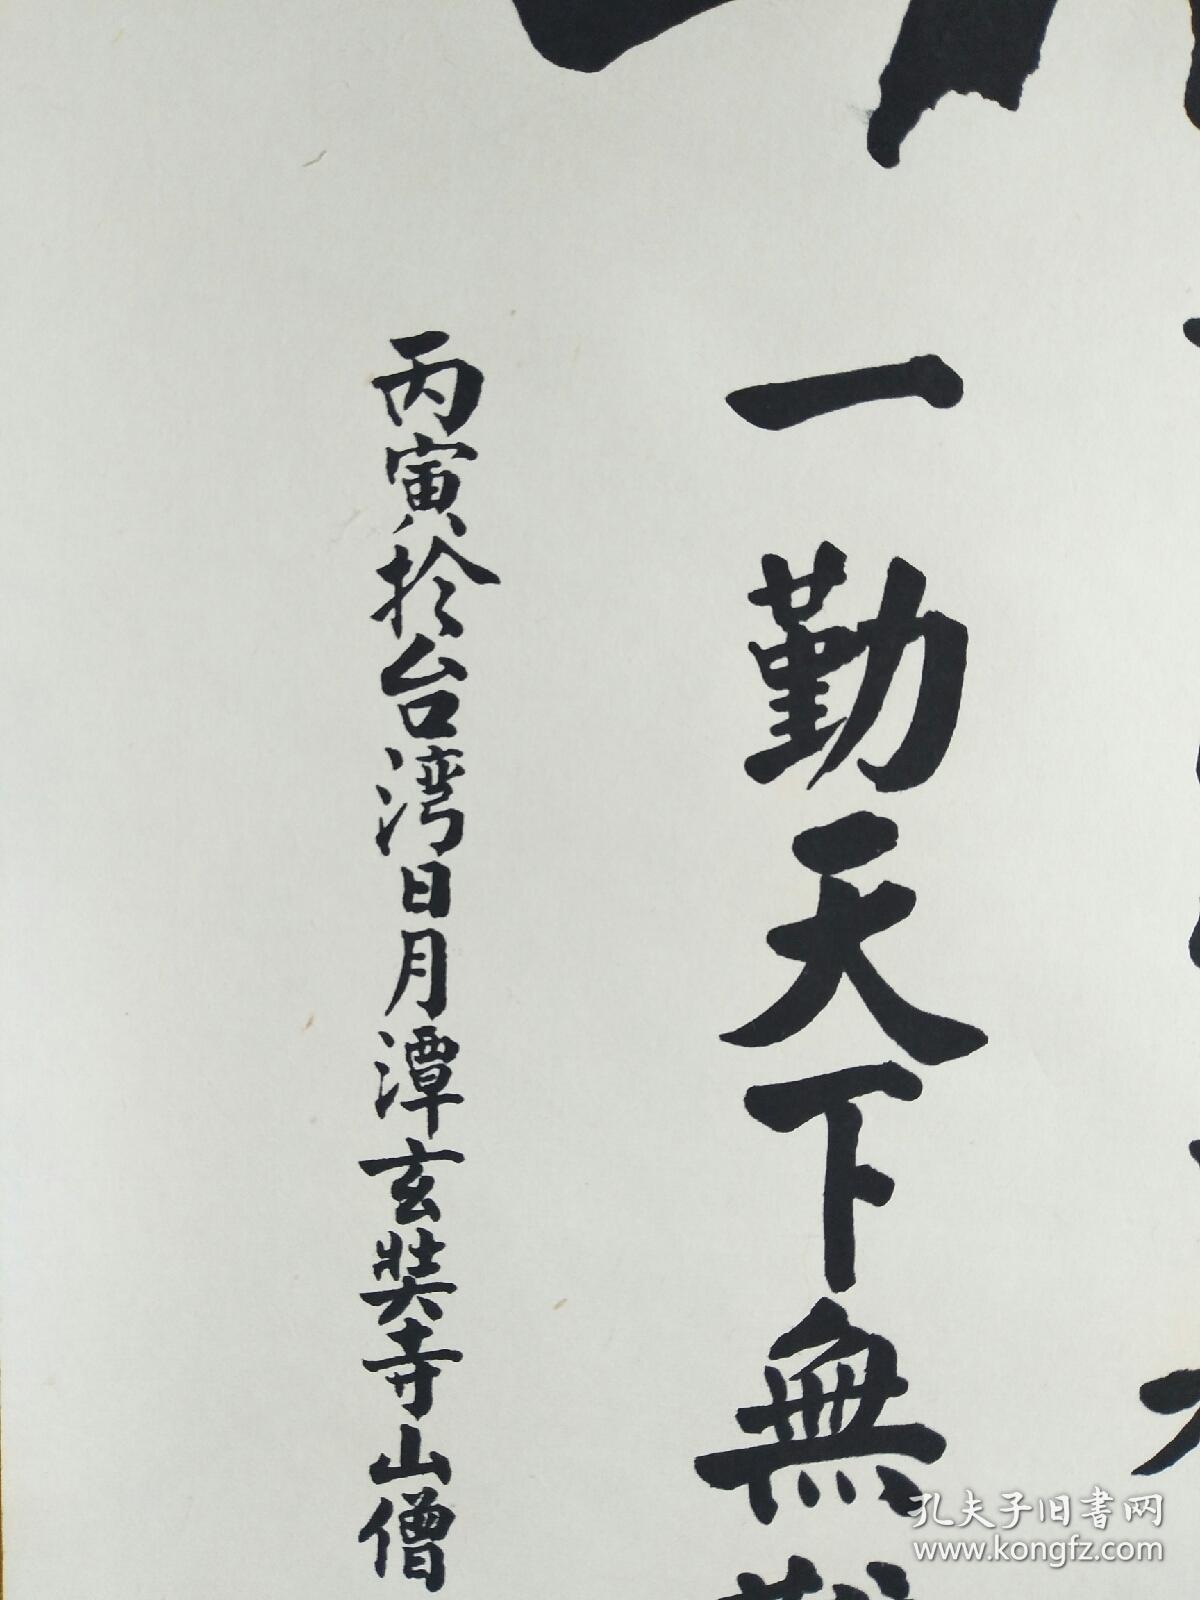 一勤天下無難
丙寅於台湾日月潭玄奘寺山僧
孔夫子旧書网
www.kongfz.com